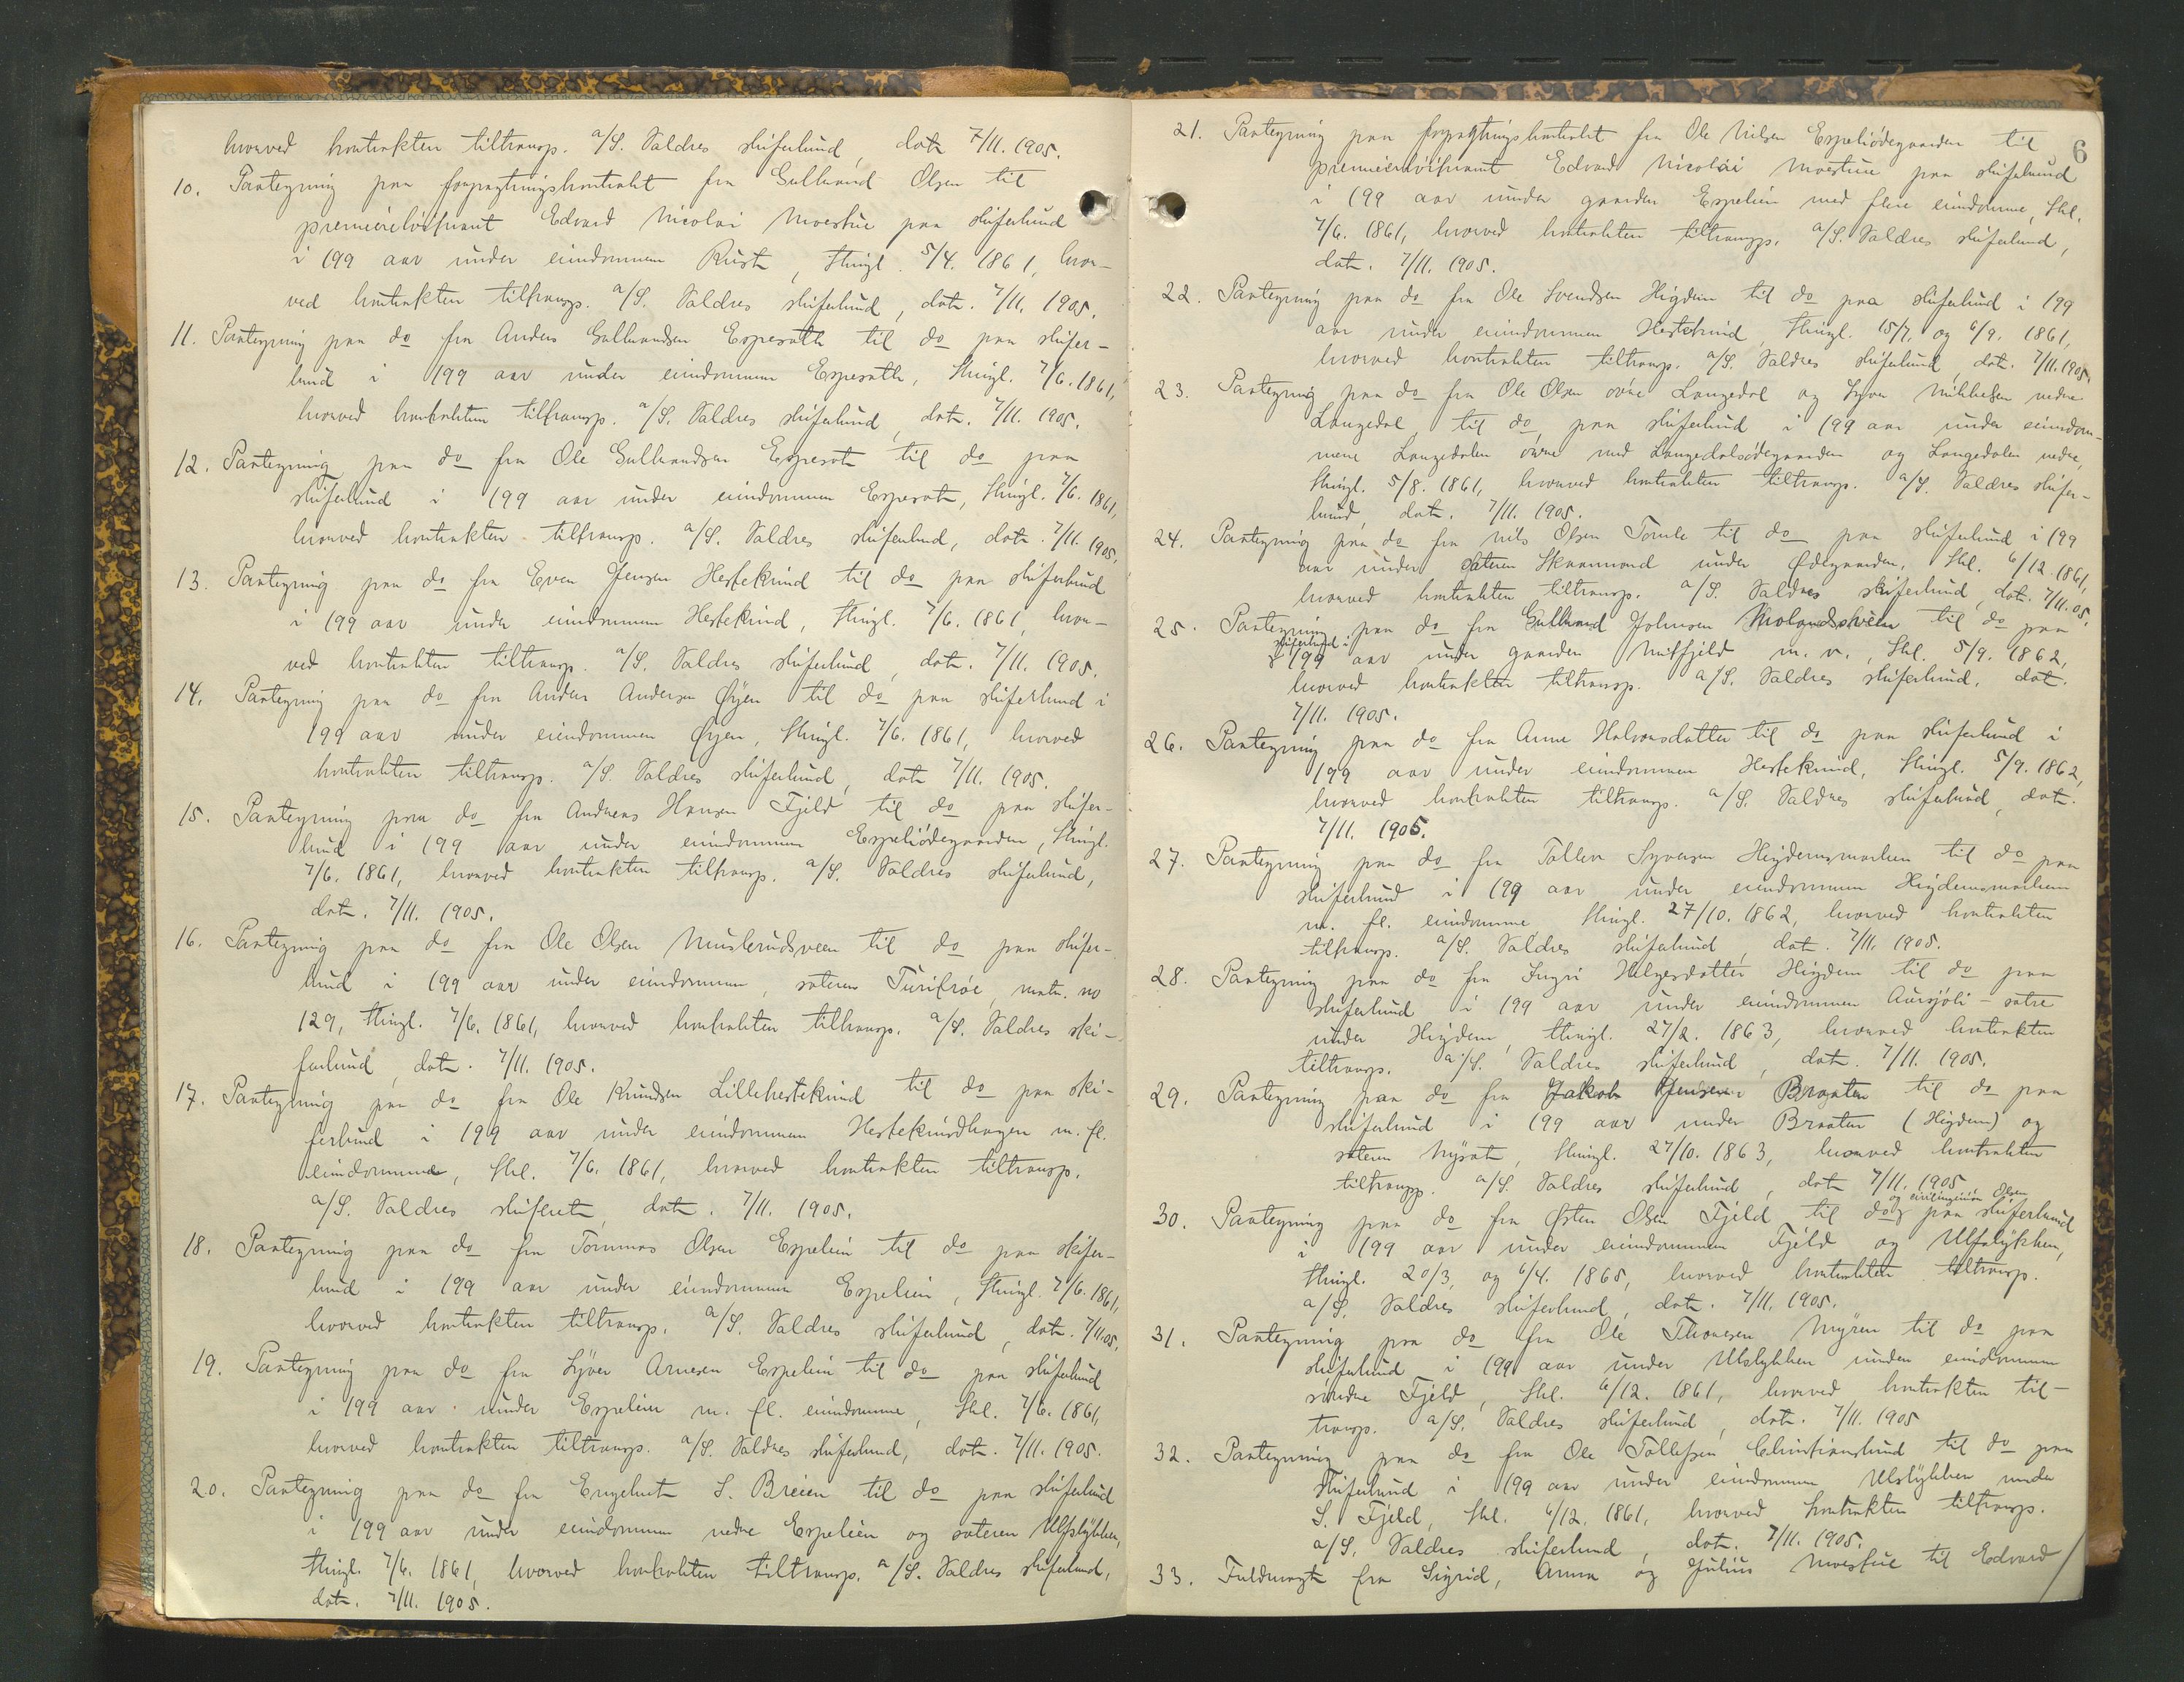 hvorved kontrakten tiltransp. a/S. Valdres skiferbrud, dat. 7/11. 1905.
10. Paategning paa forpagtningskontrakt fra Gulbrand Olsen til
premierløitnant Edvard Nicolai Moestue paa skiferbrud
i 199 aar under eiendommen Ruste, thingl. 5/4. 1861, hvor-
ved kontrakten tiltransp. a/S. Valdres skiferbrud, dat. 7/11. 1905.
11. Paategning paa do fra Anders Gulbrandsen Espesæth til do paa skifer-
brud i 199 aar under eiendommen Espesæth, thingl. 7/6. 1861,
hvorved kontrakten tiltransp. a/S. Valdres skiferbrud, dat. 7/11. 1905.
12. Paategning paa do fra Ole Gulbrandsen Espesæt til do paa
skiferbrud i 199 aar under eiendommen Espesæt, thingl. 7/6. 1861,
hvorved kontrakten tiltransp. a/S. Valdres skiferbrud, dat. 7/11. 1905,
13. Paategning paa do fra Even Jensen Hestekind til do paa skiferbrud
i 199 aar under eiendommen Hestekind, thingl. 7/6. 1861, hvor-
ved kontrakten tiltransp. a/S. Valdres skiferbrud, dat. 7/11. 1905.
14. Paategning paa do fra Anders Andersen Øyen til do paa skiferbrud i
199 aar under eiendommen Øyen, thingl. 7/6. 1861, hvorved
kontrakten tiltransp. a/S. Valdres skiferbrud, dat. 7/11. 1905.
15. Paategning paa do fra Andreas Hansen Fjeld til do paa skifer-
brud i 199 aar under eiendommen Espeliødegaarden, thingl.
7/6. 1861, hvorved kontrakten tiltransp. a/S. Valdres skiferbrud,
dat. 7/11. 1905.
16. Paategning paa do fra Ole Olsen Muslerudsveen til do paa skifer-
brud i 199 aar under eiendommen, sæteren Turifrøe, matr. no
129, thingl. 7/6. 1861, hvorved kontrakten tiltransp. a/S. Valdres ski-
ferbrud, dat. 7/11. 1905.
17. Paategning paa do fra Ole Knudsen Lillehestekind til do paa ski-
ferbrud i 199 aar under eiendommen Hestekindhagen m. fl.
eiendomme, thl. 7/6. 1861, hvorved kontrakten tiltransp.
a/S. Valdres skiferbr. dat. 7/11. 1905.
18. Paategning paa do fra Tommas Olsen Espelien til do paa skifer-
brud i 199 aar under eiendommen Espelien, thingl. 7/6. 1861,
hvorved kontrakten tiltransp. a/S. Valdres skiferbrud, dat. 7/11.05.
19. Paategning paa do fra Syver Arnesen Espelien til do paa skiferbrud
i 199 aar under Espelien m. fl. eiendomme, thl. 7/6. 1861,
hvorved kontrakten tiltransp. a/S. Valdres skiferbrud, dat. 7/11. 1905.
20. Paategning paa do fra Engebret S. Breien til do paa skiferbrud
i 199 aar under eiendommen nedre Espelien og sæteren Ulfslykken,
thingl. 7/6. 1861, hvorved kontrakten tiltransp. a/S. Valdres skiferbrud,
dat. 7/11. 1905.
6
21. Paategning paa forpagtningskontrakt fra Ole Nilsen Espeliødegaarden til
premierløitnant Edvard Nicolai Moestue paa skiferbrud
i 199 aar under gaarden Espelien med flere eiendomme, thl.
7/6. 1861, hvorved kontrakten tiltransp. a/S. Valdres skiferbrud,
dat. 7/11. 1905.
22. Paategning paa do fra Ole Svendsen Høgdem til do paa skiferbrud i 199
aar under eiendommen Hestekind, thingl. 15/7. og 6/9. 1861,
hvorved kontrakten tiltransp. a/S. Valdres skiferbrud, dat. 7/11. 1905.
23. Paategning paa do fra Ole Olsen øvre Langedal og Mikkelsen nedre
Langedal til do paa skiferbrud i 199 aar under eiendom-
mene Langedalen øvre med Langedalsødegaarden og Langedalen nedre,
thingl. 5/8. 1861, hvorved kontrakten tiltransp. a/S. Valdres skifer-
brud, dat. 7/11. 1905.
24. Paategning paa do fra Nils Olsen Tomle til do paa skiferbrud i 199
aar under sæteren Skaanmord under Ødegaarden, thl. 6/12. 1861,
hvorved kontrakten tiltransp. a/S. Valdres skiferbrud, dat. 7/11. 05.
25. Paategning paa do fra Gulbrand Johnsen til do paa
skiferbrud i
199 aar under gaarden Midtfjeld m. v., thl. 5/9. 1862,
hvorved kontrakten tiltransp. a/S. Valdres skiferbrud, dat.
7/11. 1905.
26. Paategning paa do fra Anne Halvorsdatter til do paa skiferbrud i
199 aar under eiendommen Hestekind, thingl. 5/9. 1862,
hvorved kontrakten tiltransp. a/S. Valdres skiferbrud, dat.
7/11. 1905.
27. Paategning paa do fra Tollev Syversen Høgdemsmarken til do paa
skiferbrud i 199 aar under eiendommen Høgdemsmarken
m. fl. eiendomme thingl. 27/10. 1862, hvorved kontrakten
tiltransp. a/S. Valdres skiferbrud, dat. 7/11. 1905.
28. Paategning paa do fra Ingri Helgesdatter Høgdem til do paa
skiferbrud i 199 aar under eiendommen Aursjøli-sætre
under Høgdem, thingl. 27/2. 1863, hvorved kontrakten
tiltransp. a/S. Valdres skiferbrud, dat. 7/11. 1905.
29. Paategning paa do fra Jakob Jensen Braaten til do paa
skiferbrud i 199 aar under Braaten (Høgdem) og
sæteren Nysæt, thingl. 27/10. 1863, hvorved kontrakten
tiltransp. a/S. Valdres skiferbrud, dat. 7/11. 1905
og civilingeniør Olsen
30. Paategning paa do fra Østen Olsen Fjeld til do paa skiferbrud
i 199 aar under eiendommen Fjeld og Ulfslykken,
thingl. 20/3. og 6/4. 1865, hvorved kontrakten tiltransp.
a/S. Valdres skiferbrud, dat. 7/11. 1905.
31. Paategning paa do fra Ole Thomesen Myren til do paa
skiferbrud i 199 aar under Ulslykken under eiendommen
søndre Fjeld, thl. 6/12. 1861, hvorved kontrakten til-
transp. a/S. Valdres skiferbrud, dat. 7/11. 1905
32. Paategning paa do fra Ole Tollefsen Christianslund til do paa
skiferbrud i 199 aar under eiendommen Ulslykken under
S. Fjeld, thl. 6/12. 1861, hvorved kontrakten tiltransp.
a/S. Valdres skiferbrud, dat. 7/11. 1905.
33. Fuldmagt fra Sigrid, Anna og Julius Moestue til Edvard